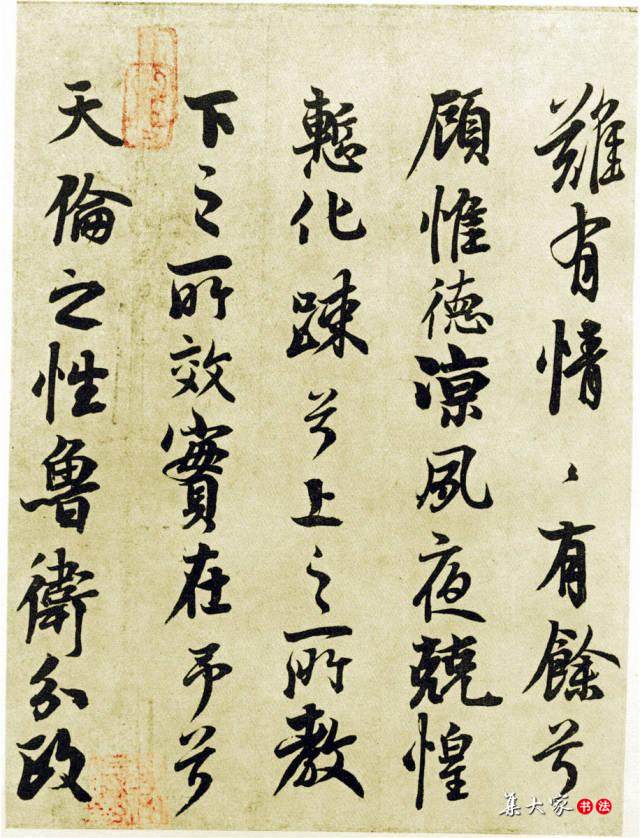 難有情〻有餘兮
顧惟德涼夙夜兢惶
慙化踈兮上之所教
下之所效實在予兮
天倫之性魯衛分政
集大家书法